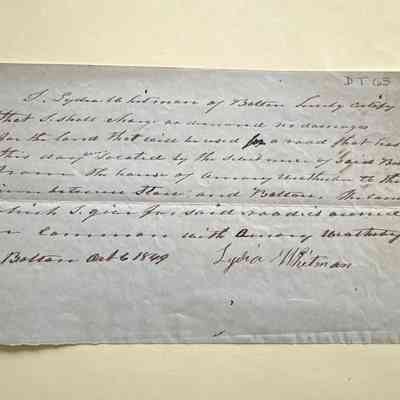 DT65
I, Lydia Whitman of Bolton hereby certify
that I shall charge or demand no damages
for the land that will be used for a road that has
this day located by the Selectmen of said Bolton
from the house of Amory to the
line between Stow and Bolton. The land
which I give for said road is owned
in common with Amory
Bolton Oct 6 1849 Lydia Whitman